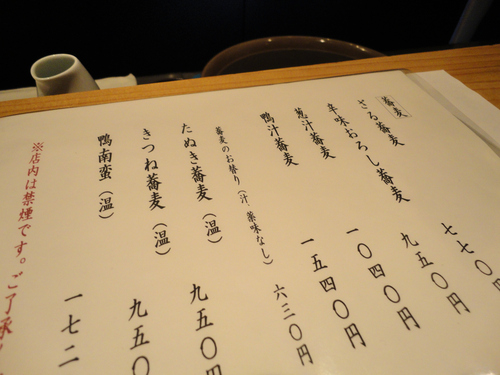 蕎麦
ざる蕎麦 七七〇
辛味おろし蕎麦 九五〇円
葱汁蕎麦 一〇四〇円
鴨汁蕎麦 一五四〇円
蕎麦のお替り(汁・薬味なし) 六三〇円
たぬき蕎麦(温) 九五〇円
きつね蕎麦(温) 九五〇
鴨南蛮(温) 一七二
※店内は禁煙です。ご了承